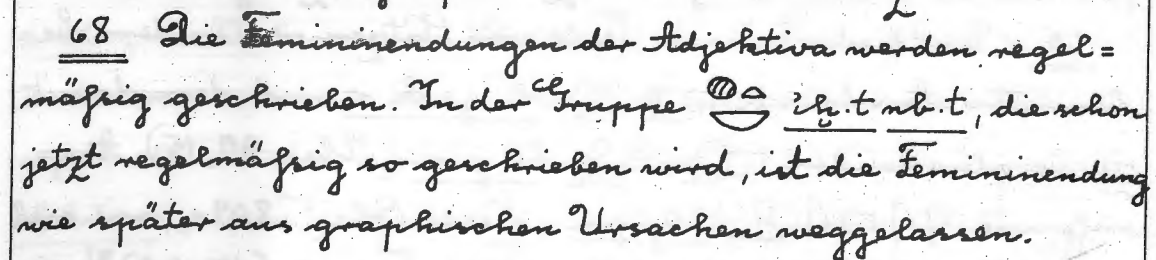 68 Die Femininendungen der Adjektiva werden regel=
mäßig geschrieben. In der Gruppe 𓐍𓏏𓎟 ı͗ḫ.t nb.t, die schon
jetzt regelmäßig so geschrieben wird, ist die Femininendung
wie später aus graphischen Ursachen weggelassen.